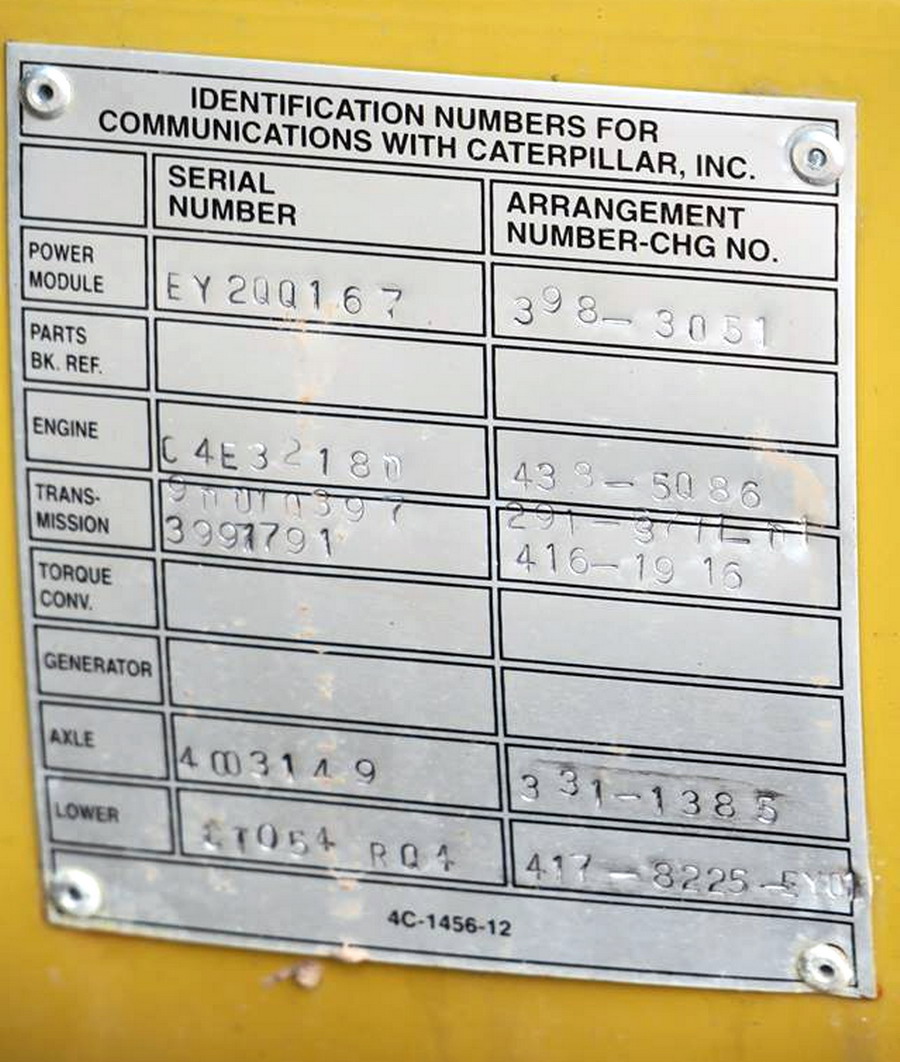 IDENTIFICATION NUMBERS FOR
COMMUNICATIONS WITH CATERPILLAR, INC.
SERIAL
NUMBER
ARRANGEMENT
NUMBER-CHG NO.
POWER
MODULE
EY200167
398-3051
PARTS
BK. REF.
ENGINE
C4E32180
433-5086
TRANS-
MISSION
3991791
416-1916
TORQUE
CONV.
GENERATOR
AXLE
4003149
331-1385
LOWER
RQ4
417-8225-EY01
4C-1456-12